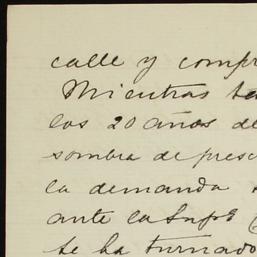 calle y compr
Mientras ta
los 20 años de
sombra de presc
la demanda
ante la Supª
se ha turnado